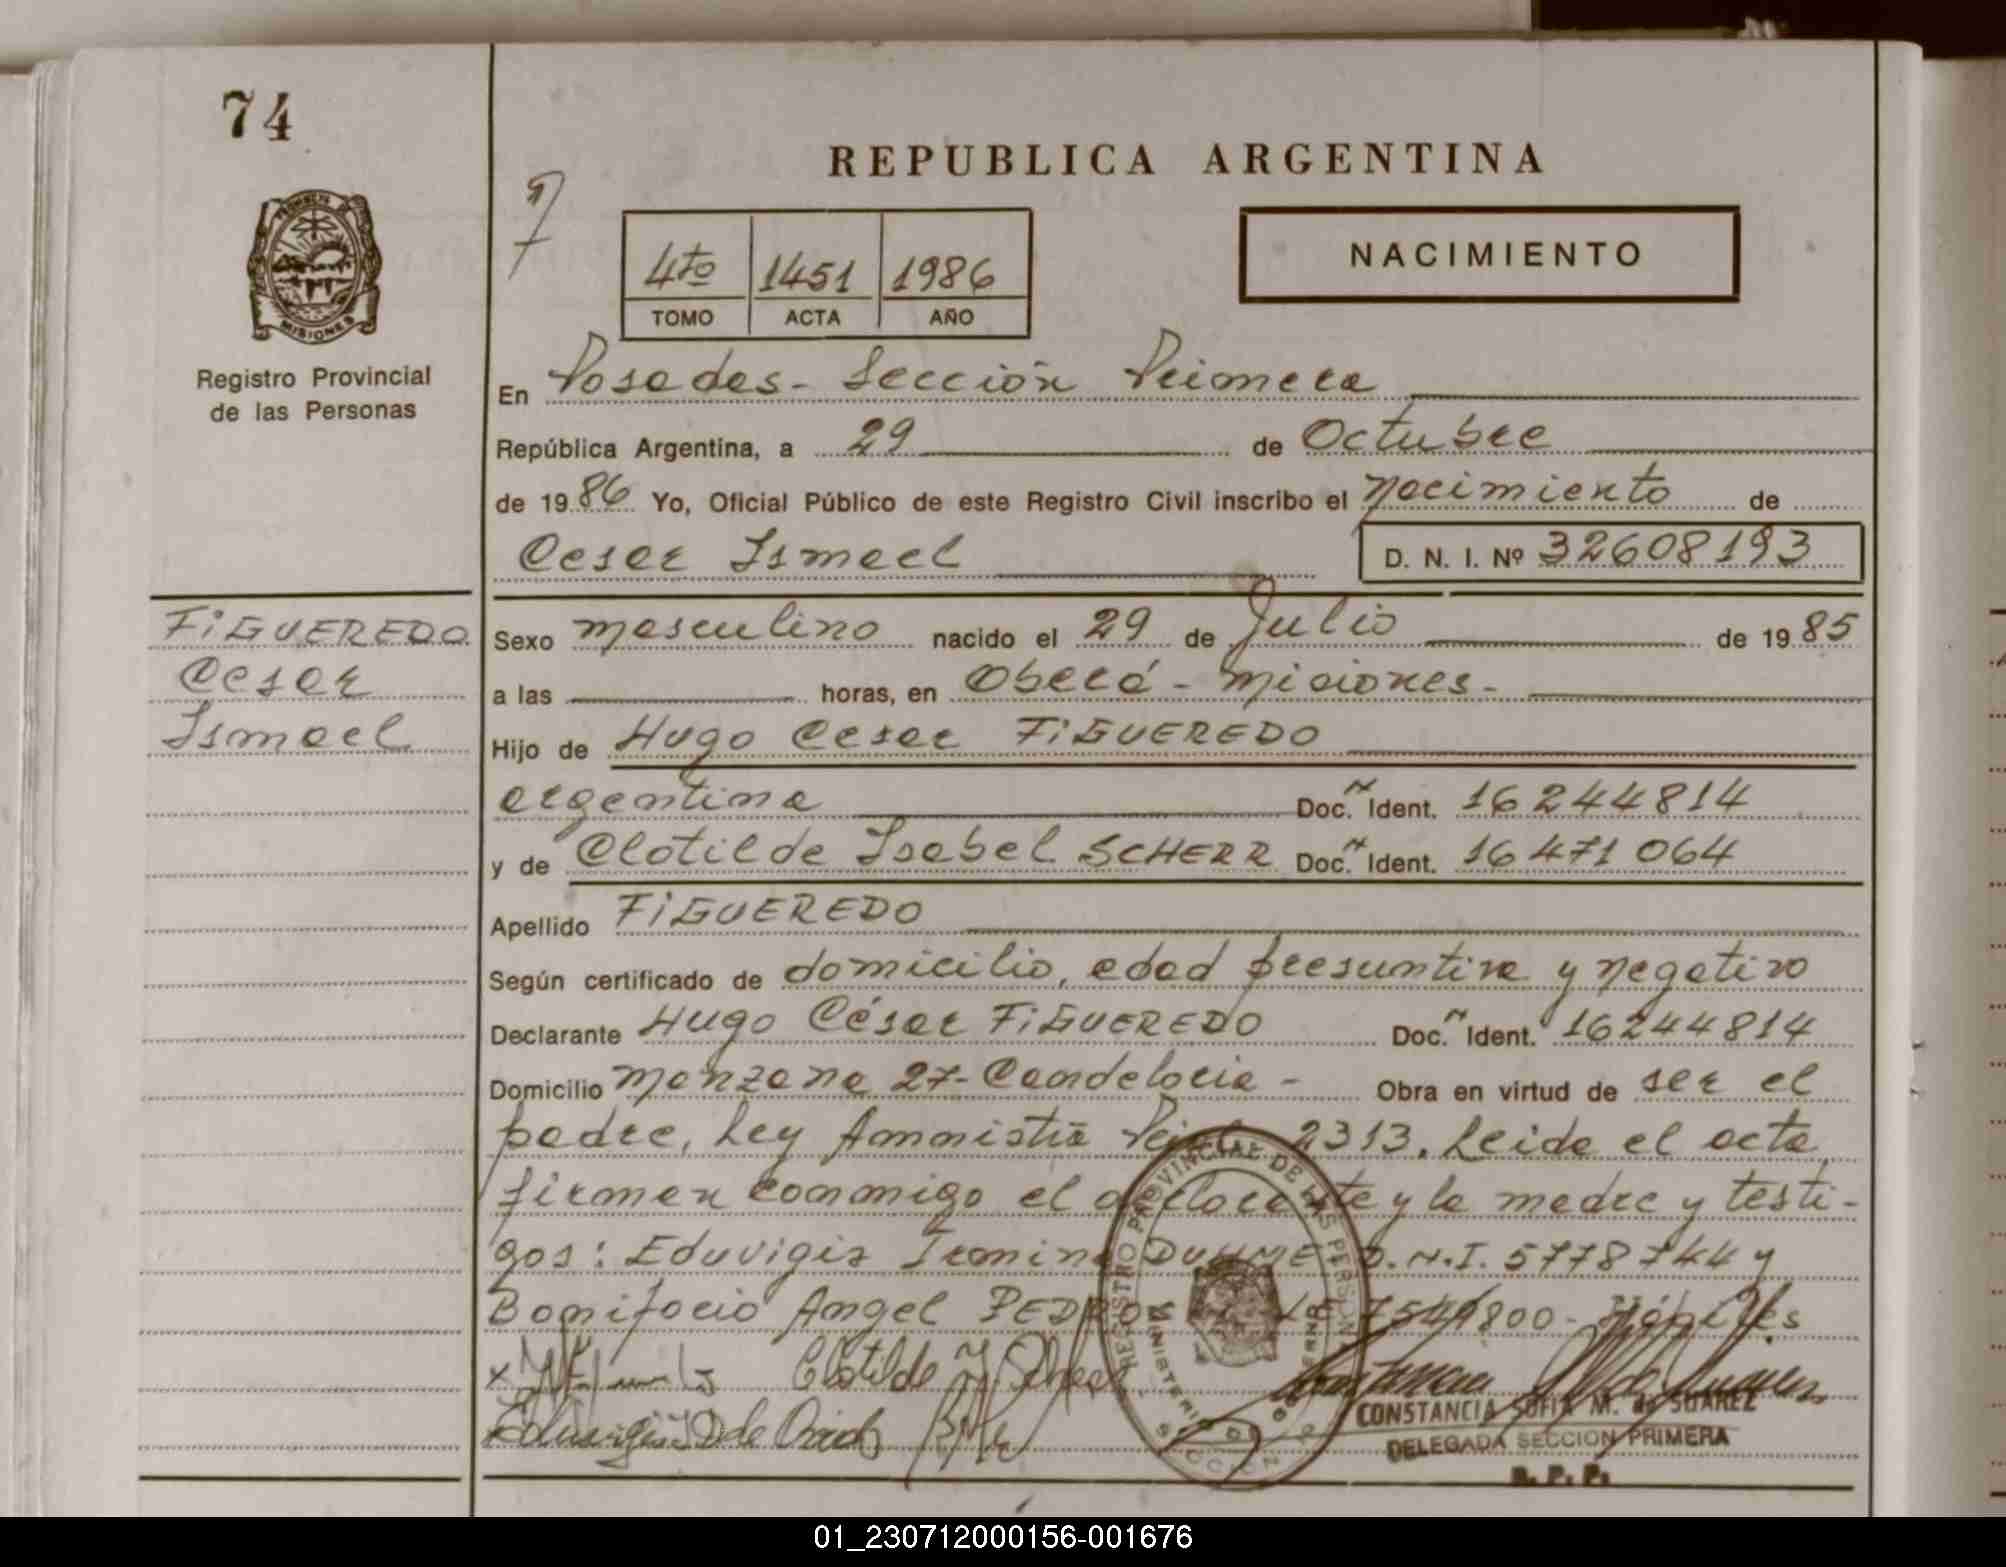 74
REPUBLICA ARGENTINA
4to 1451 1986
TOMO ACTA AÑO
NACIMIENTO
PROVINCIA DE
MISIONES
Registro Provincial
de las Personas
En Posadas - Sección Primera
República Argentina, a 29 de Octubre
de 1986 Yo, Oficial Público de este Registro Civil inscribo el nacimiento de
Cesar Ismael D. N. I. Nº 32608193
FiGUEREDO
Cesar
Ismael
Sexo masculino nacido el 29 de Julio de 1985
a las horas, en Oberá - Misiones -
Hijo de Hugo Cesar FiGUEREDO
argentina Doc. Ident. 16244814
y de Clotilde Isabel SCHERR Doc. Ident. 16471064
Apellido FiGUEREDO
Según certificado de domicilio, edad presuntiva y negativo
Declarante Hugo César FiGUEREDO Doc. Ident. 16244814
Domicilio Manzana 27 - Candelaria - Obra en virtud de ser el
padre, Ley Amnistía 2313. Leida el acta
firman conmigo el declarante y la madre y testi-
gos: Eduvigis DUHME D.N.I. 5778744 y
Bonifacio Angel
Clotilde I Scherr
REGISTRO PROVINCIAL DE LAS PERSONAS
MINISTERIO DE GOBIERNO
CONSTANCIA SOFIA M. de SUAREZ
DELEGADA SECCION PRIMERA
R. P. P.
01_230712000156-001676